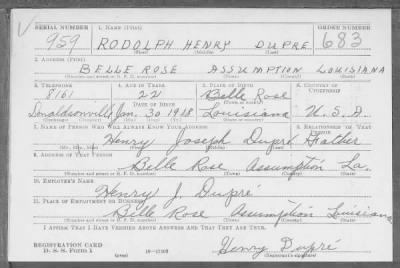 SERIAL NUMBER 1. NAME (Print) ORDER NUMBER
959 RODOLPH HENRY DUPRE 683
(First) (Middle) (Last)
2. ADDRESS (Print)
BELLE ROSE ASSUMPTION LOUISIANA
(Number and street or R. F. D. number) (Town) (County) (State)
3. TELEPHONE 4. AGE IN YEARS 5. PLACE OF BIRTH 6. COUNTRY OF CITIZENSHIP
8161 22 Belle Rose
DATE OF BIRTH (Town or county)
Donaldsonville Jan. 30 1918 Louisiana U.S.A.
(Exchange) (Number) (Mo.) (Day) (Yr.) (State or country)
7. NAME OF PERSON WHO WILL ALWAYS KNOW YOUR ADDRESS 8. RELATIONSHIP OF THAT PERSON
Henry Joseph Dupré Father
(Mr., Mrs., Miss) (First) (Middle) (Last)
9. ADDRESS OF THAT PERSON
Belle Rose Assumption La.
(Number and street or R. F. D. number) (Town) (County) (State)
10. EMPLOYER'S NAME
Henry J. Dupré
11. PLACE OF EMPLOYMENT OR BUSINESS
Belle Rose Assumption Louisiana
(Number and street or R. F. D. number) (Town) (County) (State)
I AFFIRM THAT I HAVE VERIFIED ABOVE ANSWERS AND THAT THEY ARE TRUE.
REGISTRATION CARD
D. S. S. Form 1
(over)
Henry Dupré